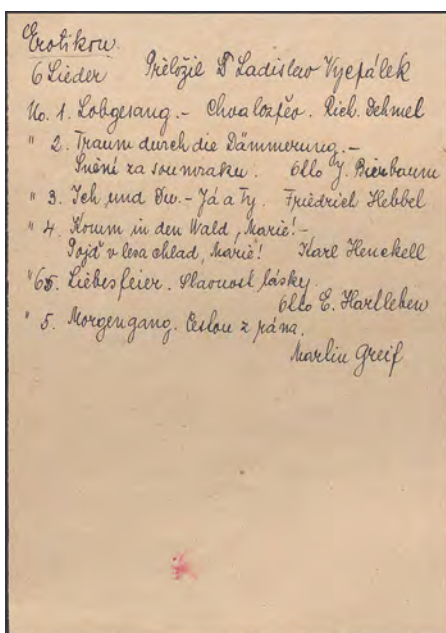 Erotikon.
6 Lieder Přeložil Dr Ladislav Vycpálek
No. 1. Lobgesang. – Chvalozpěv. Rich. Dehmel
" 2. Traum durch die Dämmerung. –
Snění za soumraku. Otto J. Bierbaum
" 3. Ich und Du. – Já a Ty. Friedrich Hebbel
" 4. Komm in den Wald, Marie! –
Pojď v lesa chlad, Marie! Karl Henckell
" 6. Liebesfeier. Slavnost lásky.
Otto E. Hartleben
" 5. Morgengang. Cestou z rána.
Martin Greif